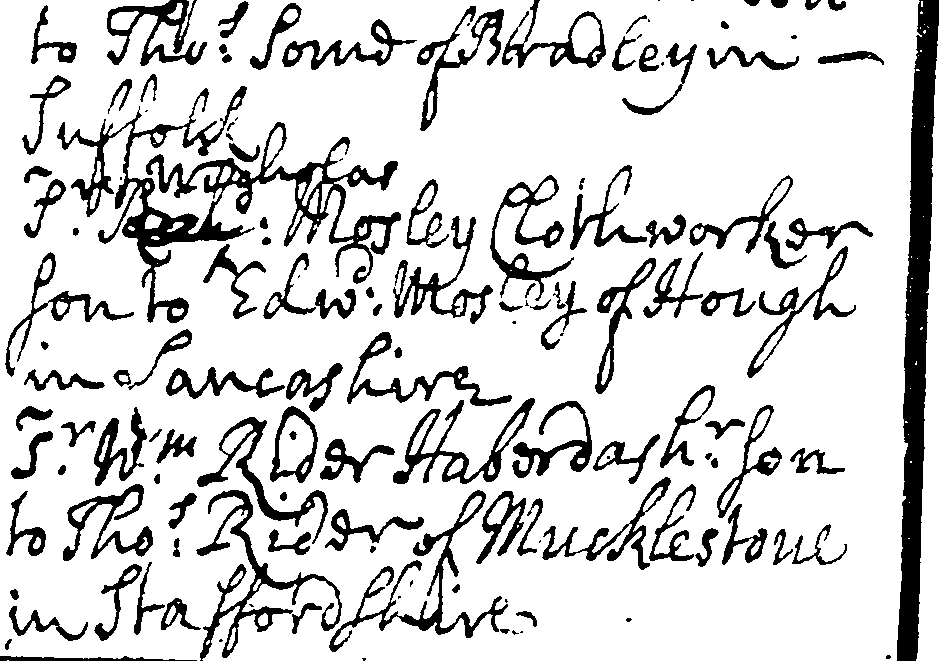 to Tho:s Somd of Bradley in —
Suffolk
Nicholas
Sr. : Mosley Clothworker
Son to Edwd: Mosley of Hough
in Lancashire
Sr Wm. Rider Haberdashr: Son
to Tho:s Rider of Mucklestone
in Staffordshire